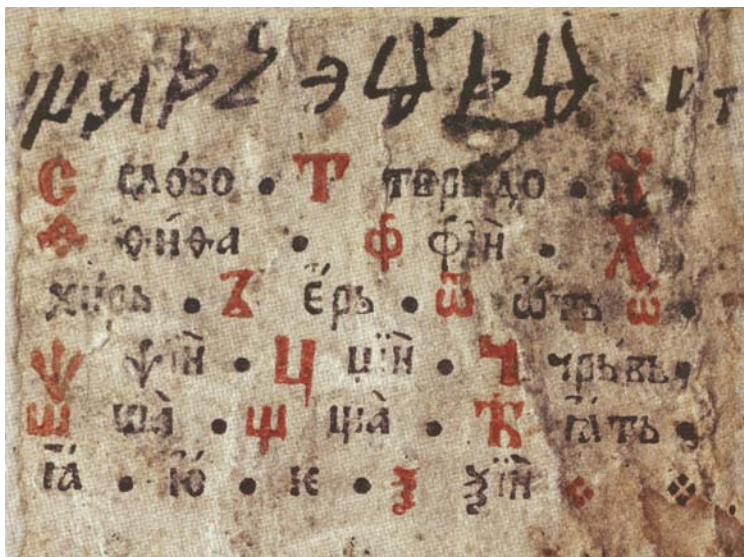 С сло́во • Т тврь́до • Ѵ •
Ѳ ѳи́ѳа • Ф фїѝ • Х
хи́рь • Ꙃ Е҆́рь • Ѿ Ѡ҆́ть ѿ •
Ѱ ѱїѝ • Ц цїѝ • Ч чрь́вь •
Ш ша̀ • Щ ща̀ • Ѣ ꙗ҆́ть •
ꙗ҆́ • ю҆́ • ѥ • Ѯ ѯїѝ